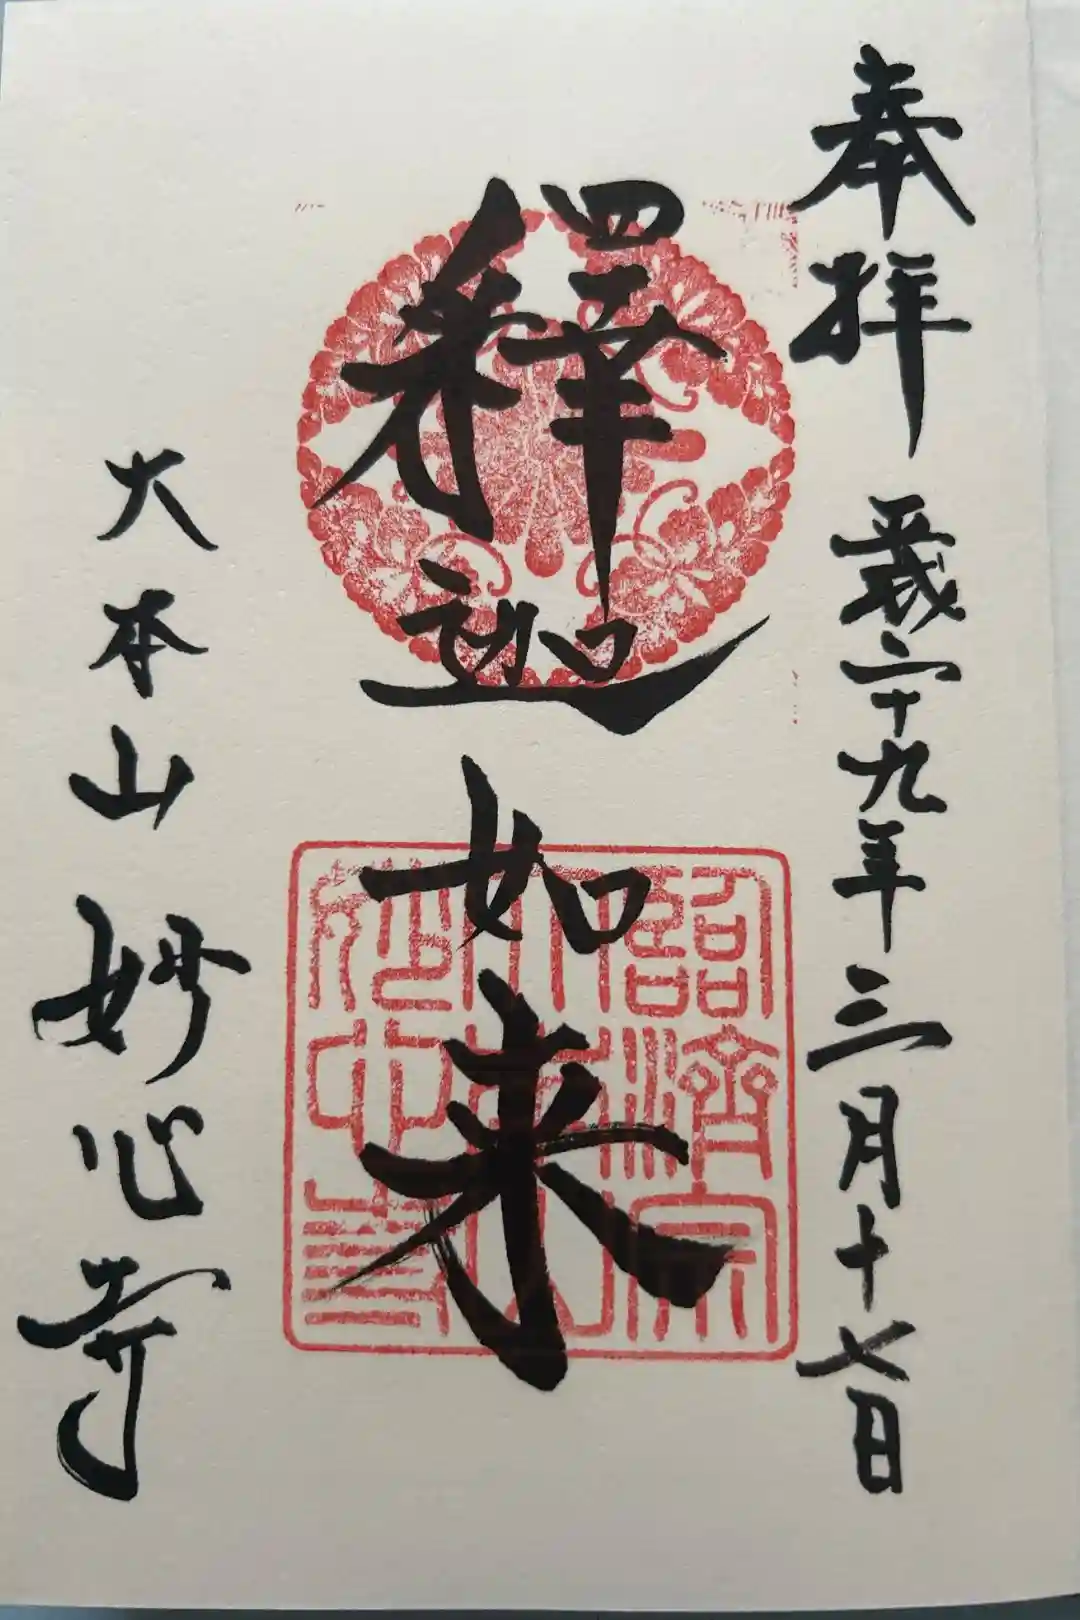 奉拝
平成二十九年三月十七日
釋迦如来
大本山妙心寺
臨濟宗
大本山
妙心寺